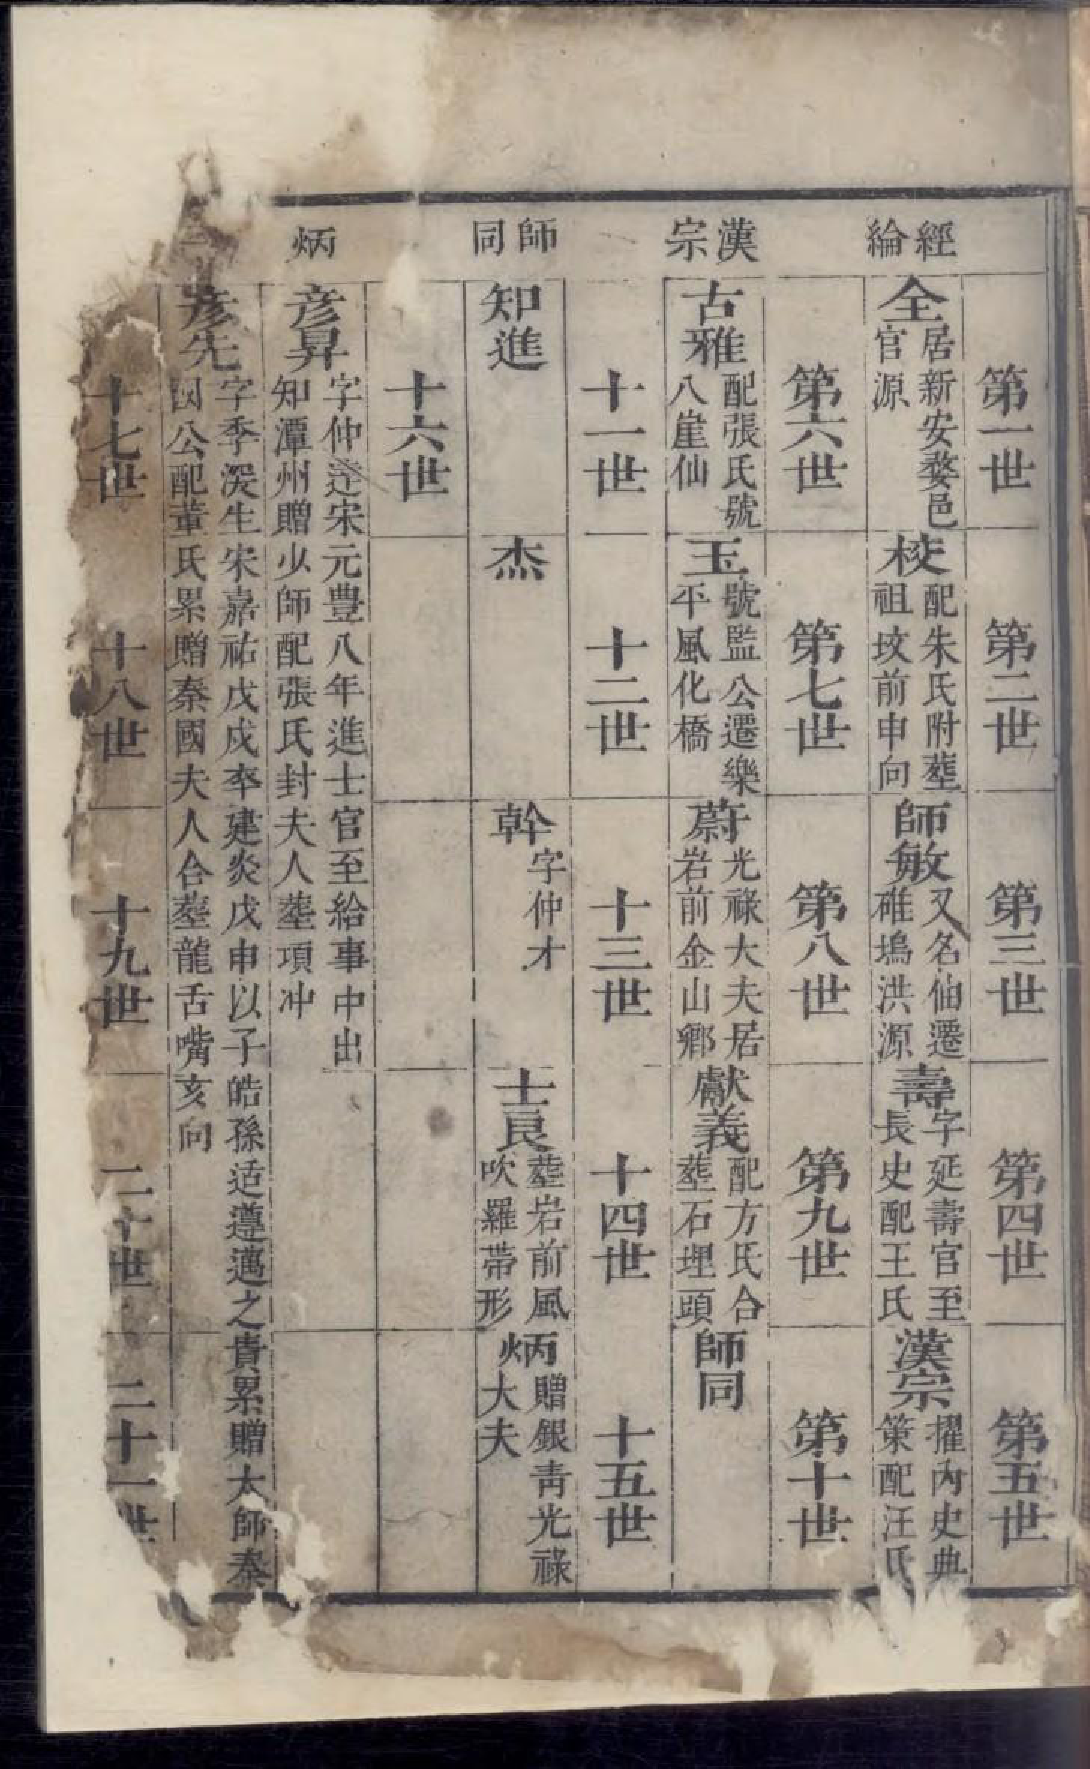 第一世
第二世
第三世
第四世
第五世
經綸
全
居新安婺邑
官源
校
配朱氏附塟
祖坟前申向
師敏
又名仙遷
碓塢洪源
壽
字延壽官至
長史配王氏
漢宗
擢內史典
策配汪氏
第六世
第七世
第八世
第九世
第十世
漢宗
古雅
配張氏號
八崖仙
玉
號監公遷樂
平風化橋
蔚
光祿大夫居
岩前金山鄉
獻義
配方氏合
塟石埋頭
師同
十一世
十二世
十三世
十四世
十五世
師同
知進
杰
幹
字仲才
士良
塟岩前風
吹羅帶形
炳
贈銀青光祿
大夫
十六世
炳
彦昇
字仲逵宋元豊八年進士官至給事中出
知潭州贈少師配張氏封夫人塟項冲
彦先
字季深生宋嘉祐戊戌卒建炎戊申以子皓孫适遵邁之貴累贈太師秦
国公配董氏累贈秦國夫人合塟龍舌嘴亥向
十七世
十八世
十九世
二十世
二十一世